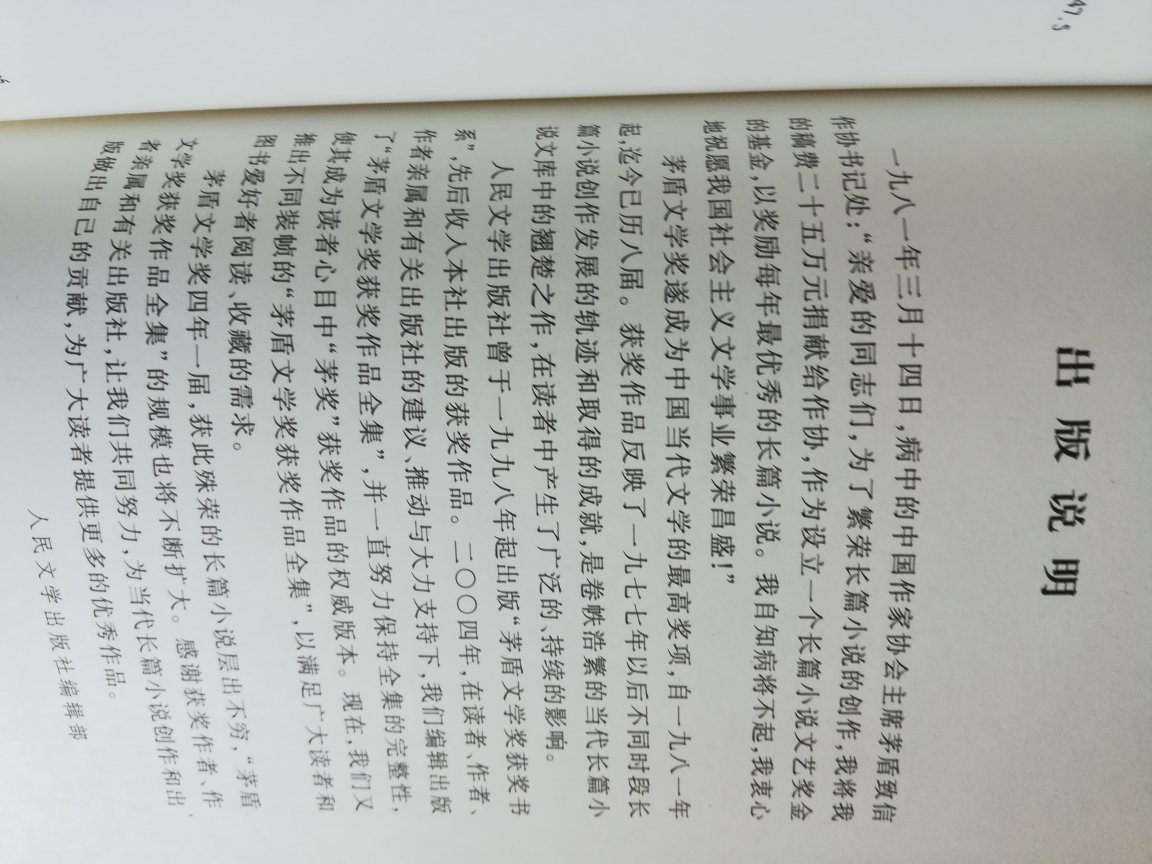 出版说明
一九八一年三月十四日,病中的中国作家协会主席茅盾致信
作协书记处:“亲爱的同志们,为了繁荣长篇小说的创作,我将我
的稿费二十五万元捐献给作协,作为设立一个长篇小说文艺奖金
的基金,以奖励每年最优秀的长篇小说。我自知病将不起,我衷心
地祝愿我国社会主义文学事业繁荣昌盛!”
茅盾文学奖遂成为中国当代文学的最高奖项,自一九八一年
起,迄今已历八届。获奖作品反映了一九七七年以后不同时段长
篇小说创作发展的轨迹和取得的成就,是卷帙浩繁的当代长篇小
说文库中的翘楚之作,在读者中产生了广泛的、持续的影响。
人民文学出版社曾于一九九八年起出版“茅盾文学奖获奖书
系”,先后收入本社出版的获奖作品。二〇〇四年,在读者、作者、
作者亲属和有关出版社的建议、推动与大力支持下,我们编辑出版
了“茅盾文学奖获奖作品全集”,并一直努力保持全集的完整性,
使其成为读者心目中“茅奖”获奖作品的权威版本。现在,我们又
推出不同装帧的“茅盾文学奖获奖作品全集”,以满足广大读者和
图书爱好者阅读、收藏的需求。
茅盾文学奖四年一届,获此殊荣的长篇小说层出不穷,“茅盾
文学奖获奖作品全集”的规模也将不断扩大。感谢获奖作者、作
者亲属和有关出版社,让我们共同努力,为当代长篇小说创作和出
版做出自己的贡献,为广大读者提供更多的优秀作品。
人民文学出版社编辑部
47.5